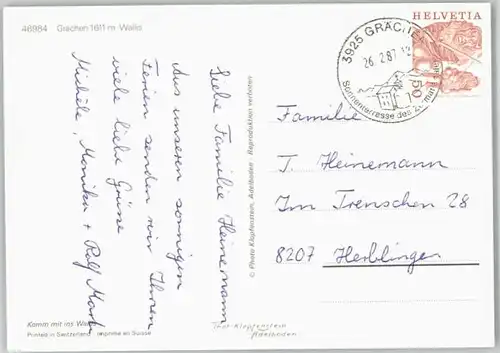 46984 Grächen 1611 m Wallis
Liebe Familie Heinemann
Aus unseren sonnigen
Ferien senden wir Ihnen
viele liebe Grüsse
Michèle, Monika + Ralf
© Photo Klopfenstein, Adelboden - Reproduktion verboten
3925 GRÄCHEN
26. 2. 87
Sonnenterrasse des
HELVETIA
50
Familie
T. Heinemann
Im Trenschen 28
8207 Herblingen
Komm mit ins
Printed in Switzerland Imprimé en Suisse
Klopfenstein
Adelboden